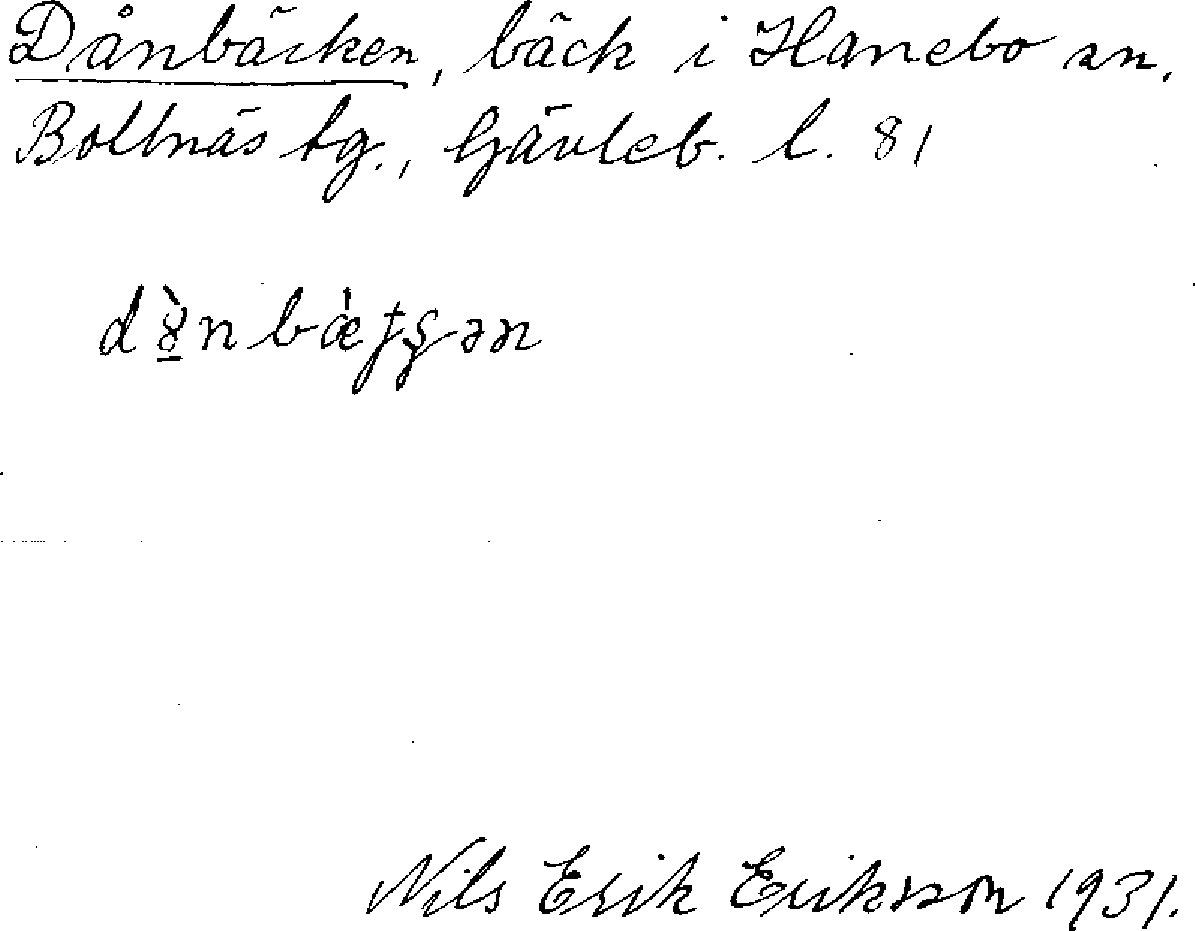 Dånbäcken, bäck i Hanebo sn.
Bollnäs tg., Gävleb. l. 81
Nils Erik Erikson 1931.